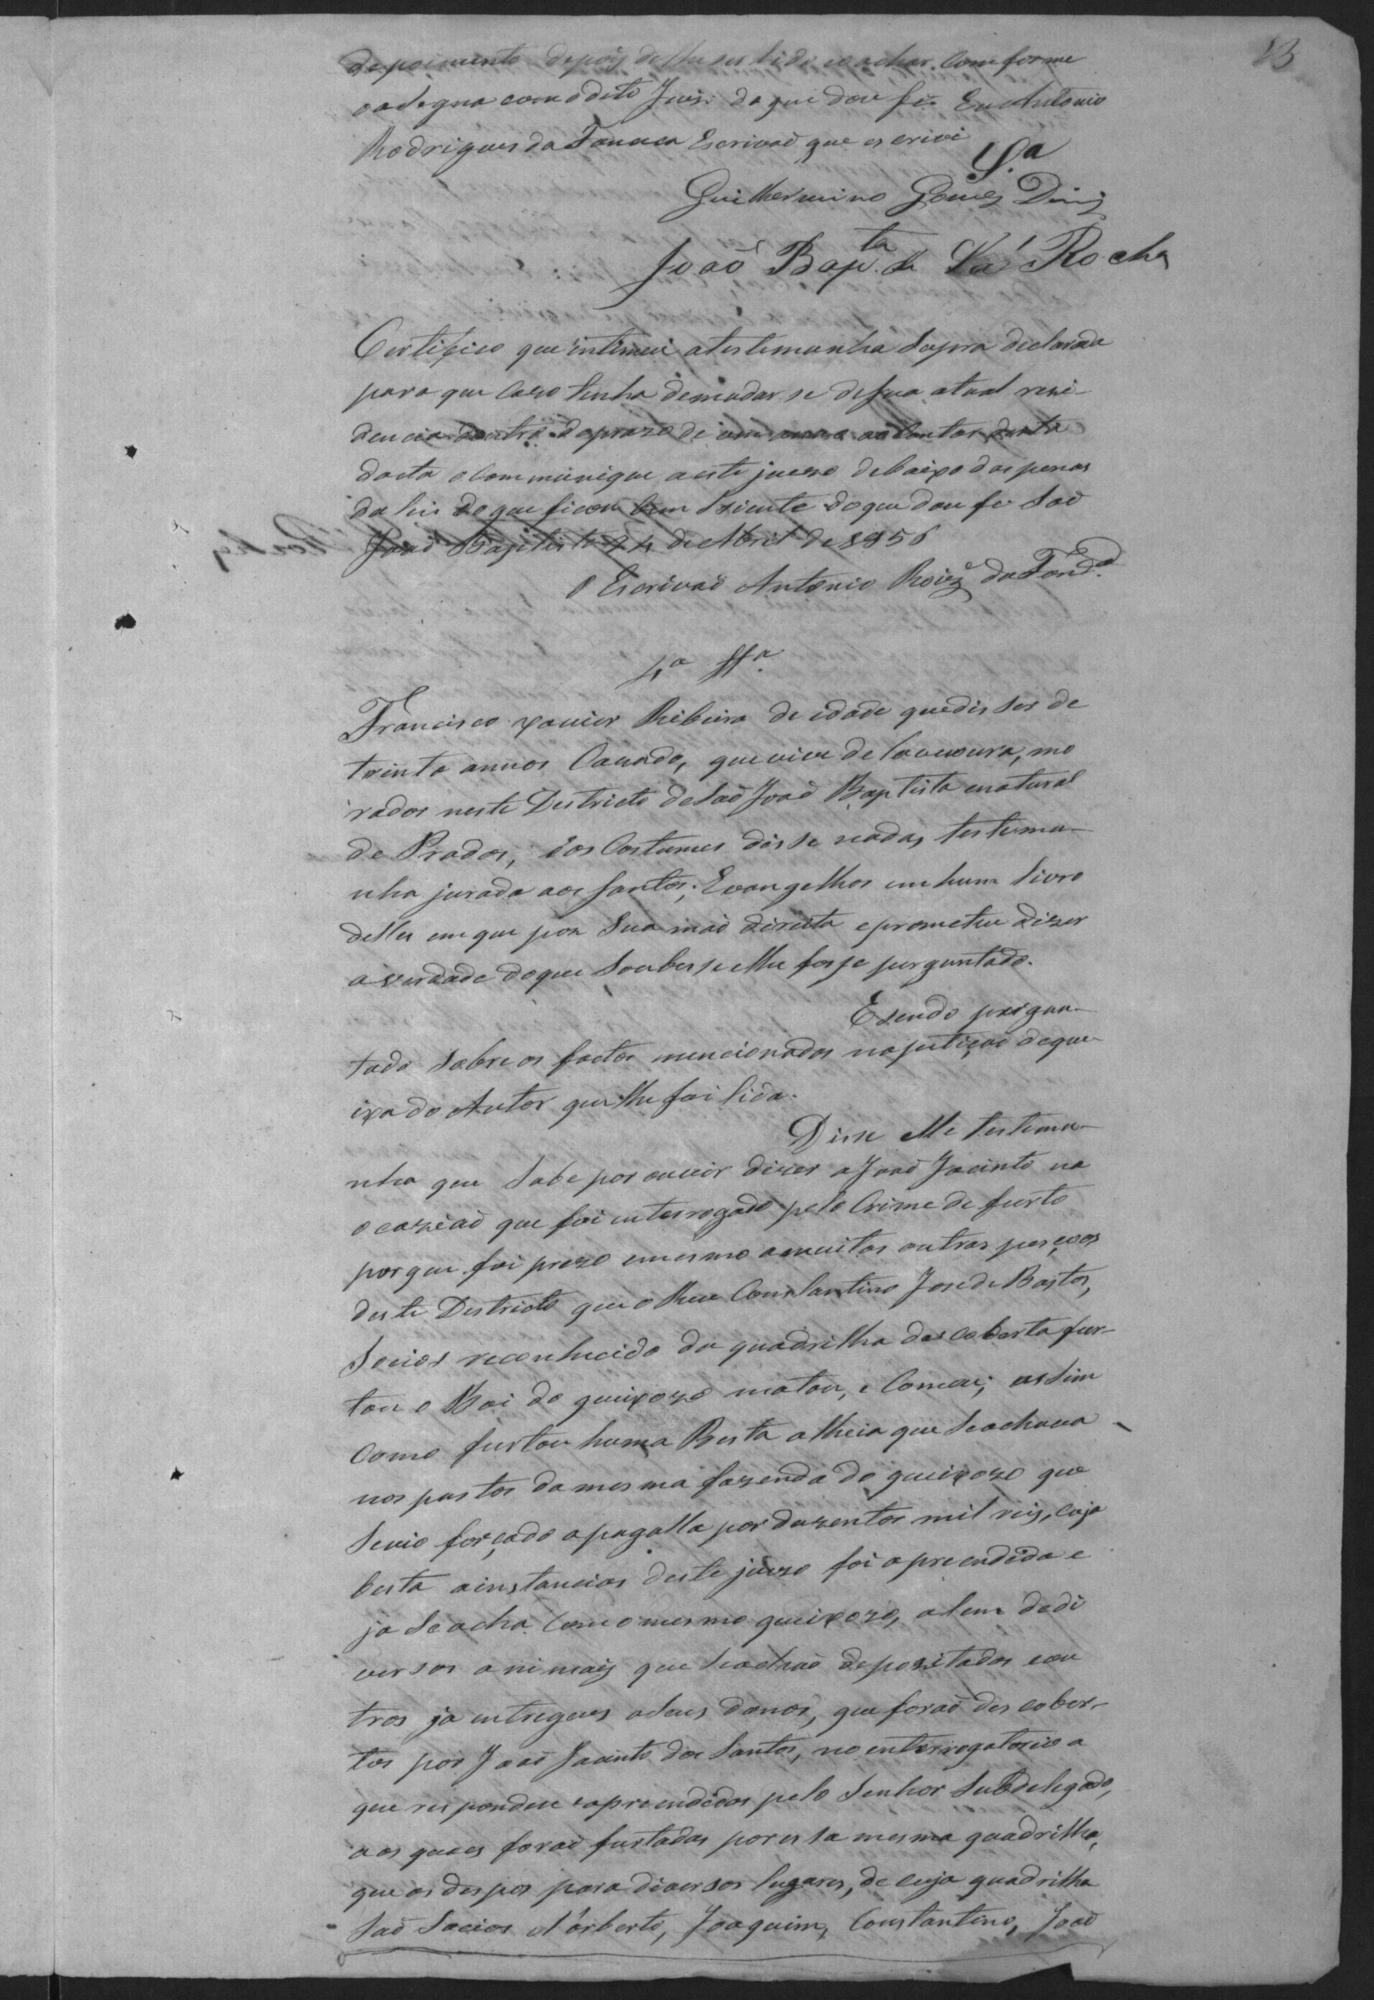 13
depoimento depois delhe ser lido eo achar comforme
oasegna com o dito Juis do que dou fé. Eu Antonio
Rodrigues da Fonseca Escrivaõ que es crivi
S.a
Guilhermino Gomes Diniz
Joaõ Bap.ta de Rocha
Certifico que intimei atestemunha Supra declarada
para que Cazo tenha demudar se desua atual rezi-
dencia dentro do prazo de um anno ao Contar desta
dacta o Communique a este juezo debaixo das penas
da lei do que ficou bem Sciente do que dou fé Saõ
Joaõ Baptista 24 de Abril de 1856
O Escrivaõ Antonio Roiz da Fonc.a
4a Tta.
Francisco xavier Ribeiro de idade quedis ser de
trinta annos Cazado, que vive de lavoura, mo
rador neste Districto de Saõ Joaõ Baptista enatural
de Prados, eos Costumes disse nada, testemu-
nha jurada aos Santos, Evangelhos em hum livro
delles em que pos Sua maõ direita e prometeu dizer
a verdade doque Souber se lhe fosse purguntado.
E sendo pergun-
tado Sobre os factos mencionados napetiçaõ deque-
ixa do Autor que lhe foi lida.
Disse elle testemu-
nha que Sabe por ouvir dizer a Joaõ Jacinto na
ocaziaõ que foi enterrogado pelo Crime de furto
por que foi prezo emesmo amuitas outras pessoas
deste Districto que o Reu Constantino Joze de Bastos,
Socios reconhecido da quadrilha descoberta fur-
tou o Boi do queixozo matou, e Comeu; assim
Como furtou huma Besta alheia que Seachava
nos pastos damesma fazenda do queixozo que
Sevio forçado apagalla por duzentos mil reis, cuja
besta ainstancias deste juezo foi apreendida e
ja Seacha Com o mesmo queixozo, alem dedi
versos animais que Seachaõ depozitados eou
tros ja entregues aseus donos, que foraõ des cober-
tos por Joaõ Jacinto dos Santos, no enterrogatorio a
que respondeu eapreendidos pelo Senhor Subdelegado,
aos quaes foraõ furtados poressa mesma quadrilha,
que os despos para diversos lugares, de cuja quadrilha
Saõ Socios Norberto, Joaquim, Constantino, Joaõ